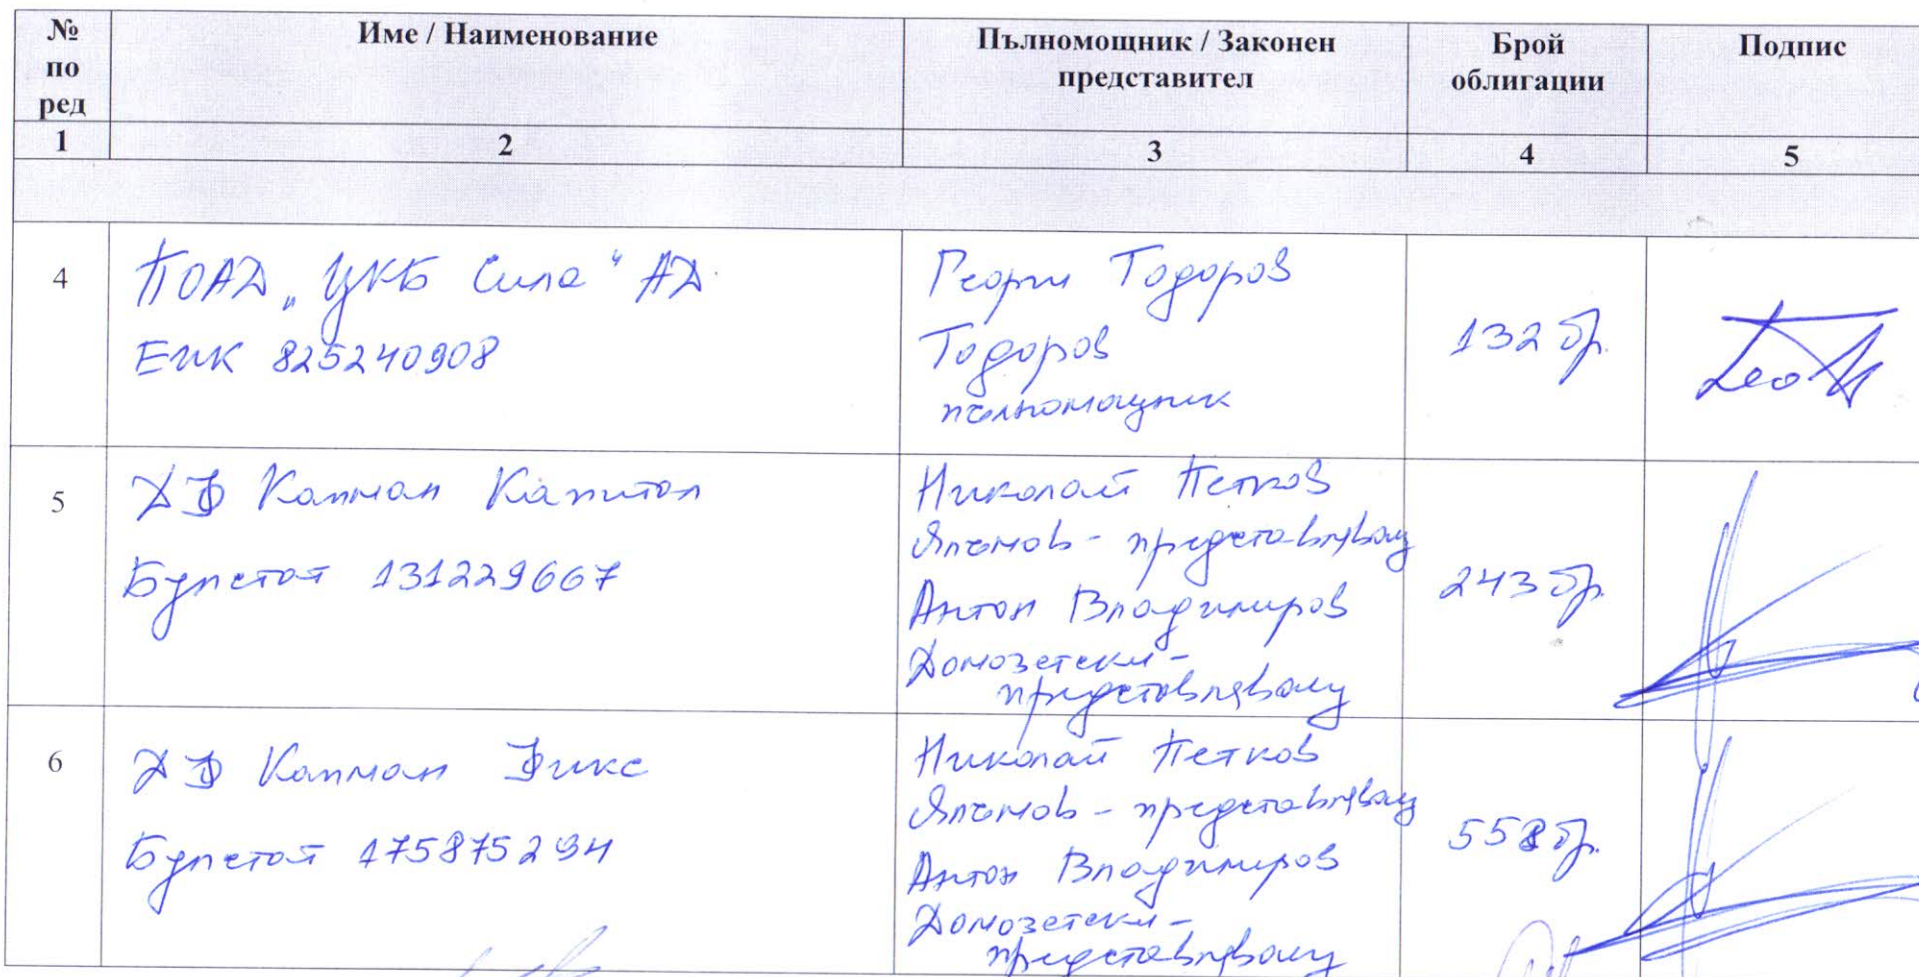 № по ред
Име / Наименование
Пълномощник / Законен представител
Брой облигации
Подпис
1
2
3
4
5
4
ПОАД „ЦКБ Сила“ АД
ЕИК 825240908
Георги Тодоров
Тодоров
пълномощник
132 бр.
5
ДФ Капман Капитал
Булстат 131229667
Николай Петков
Ялъмов - представляващ
Антон Владимиров
Домозетски -
представляващ
243 бр.
6
ДФ Капман Фикс
Булстат 175875294
Николай Петков
Ялъмов - представляващ
Антон Владимиров
Домозетски -
представляващ
558 бр.